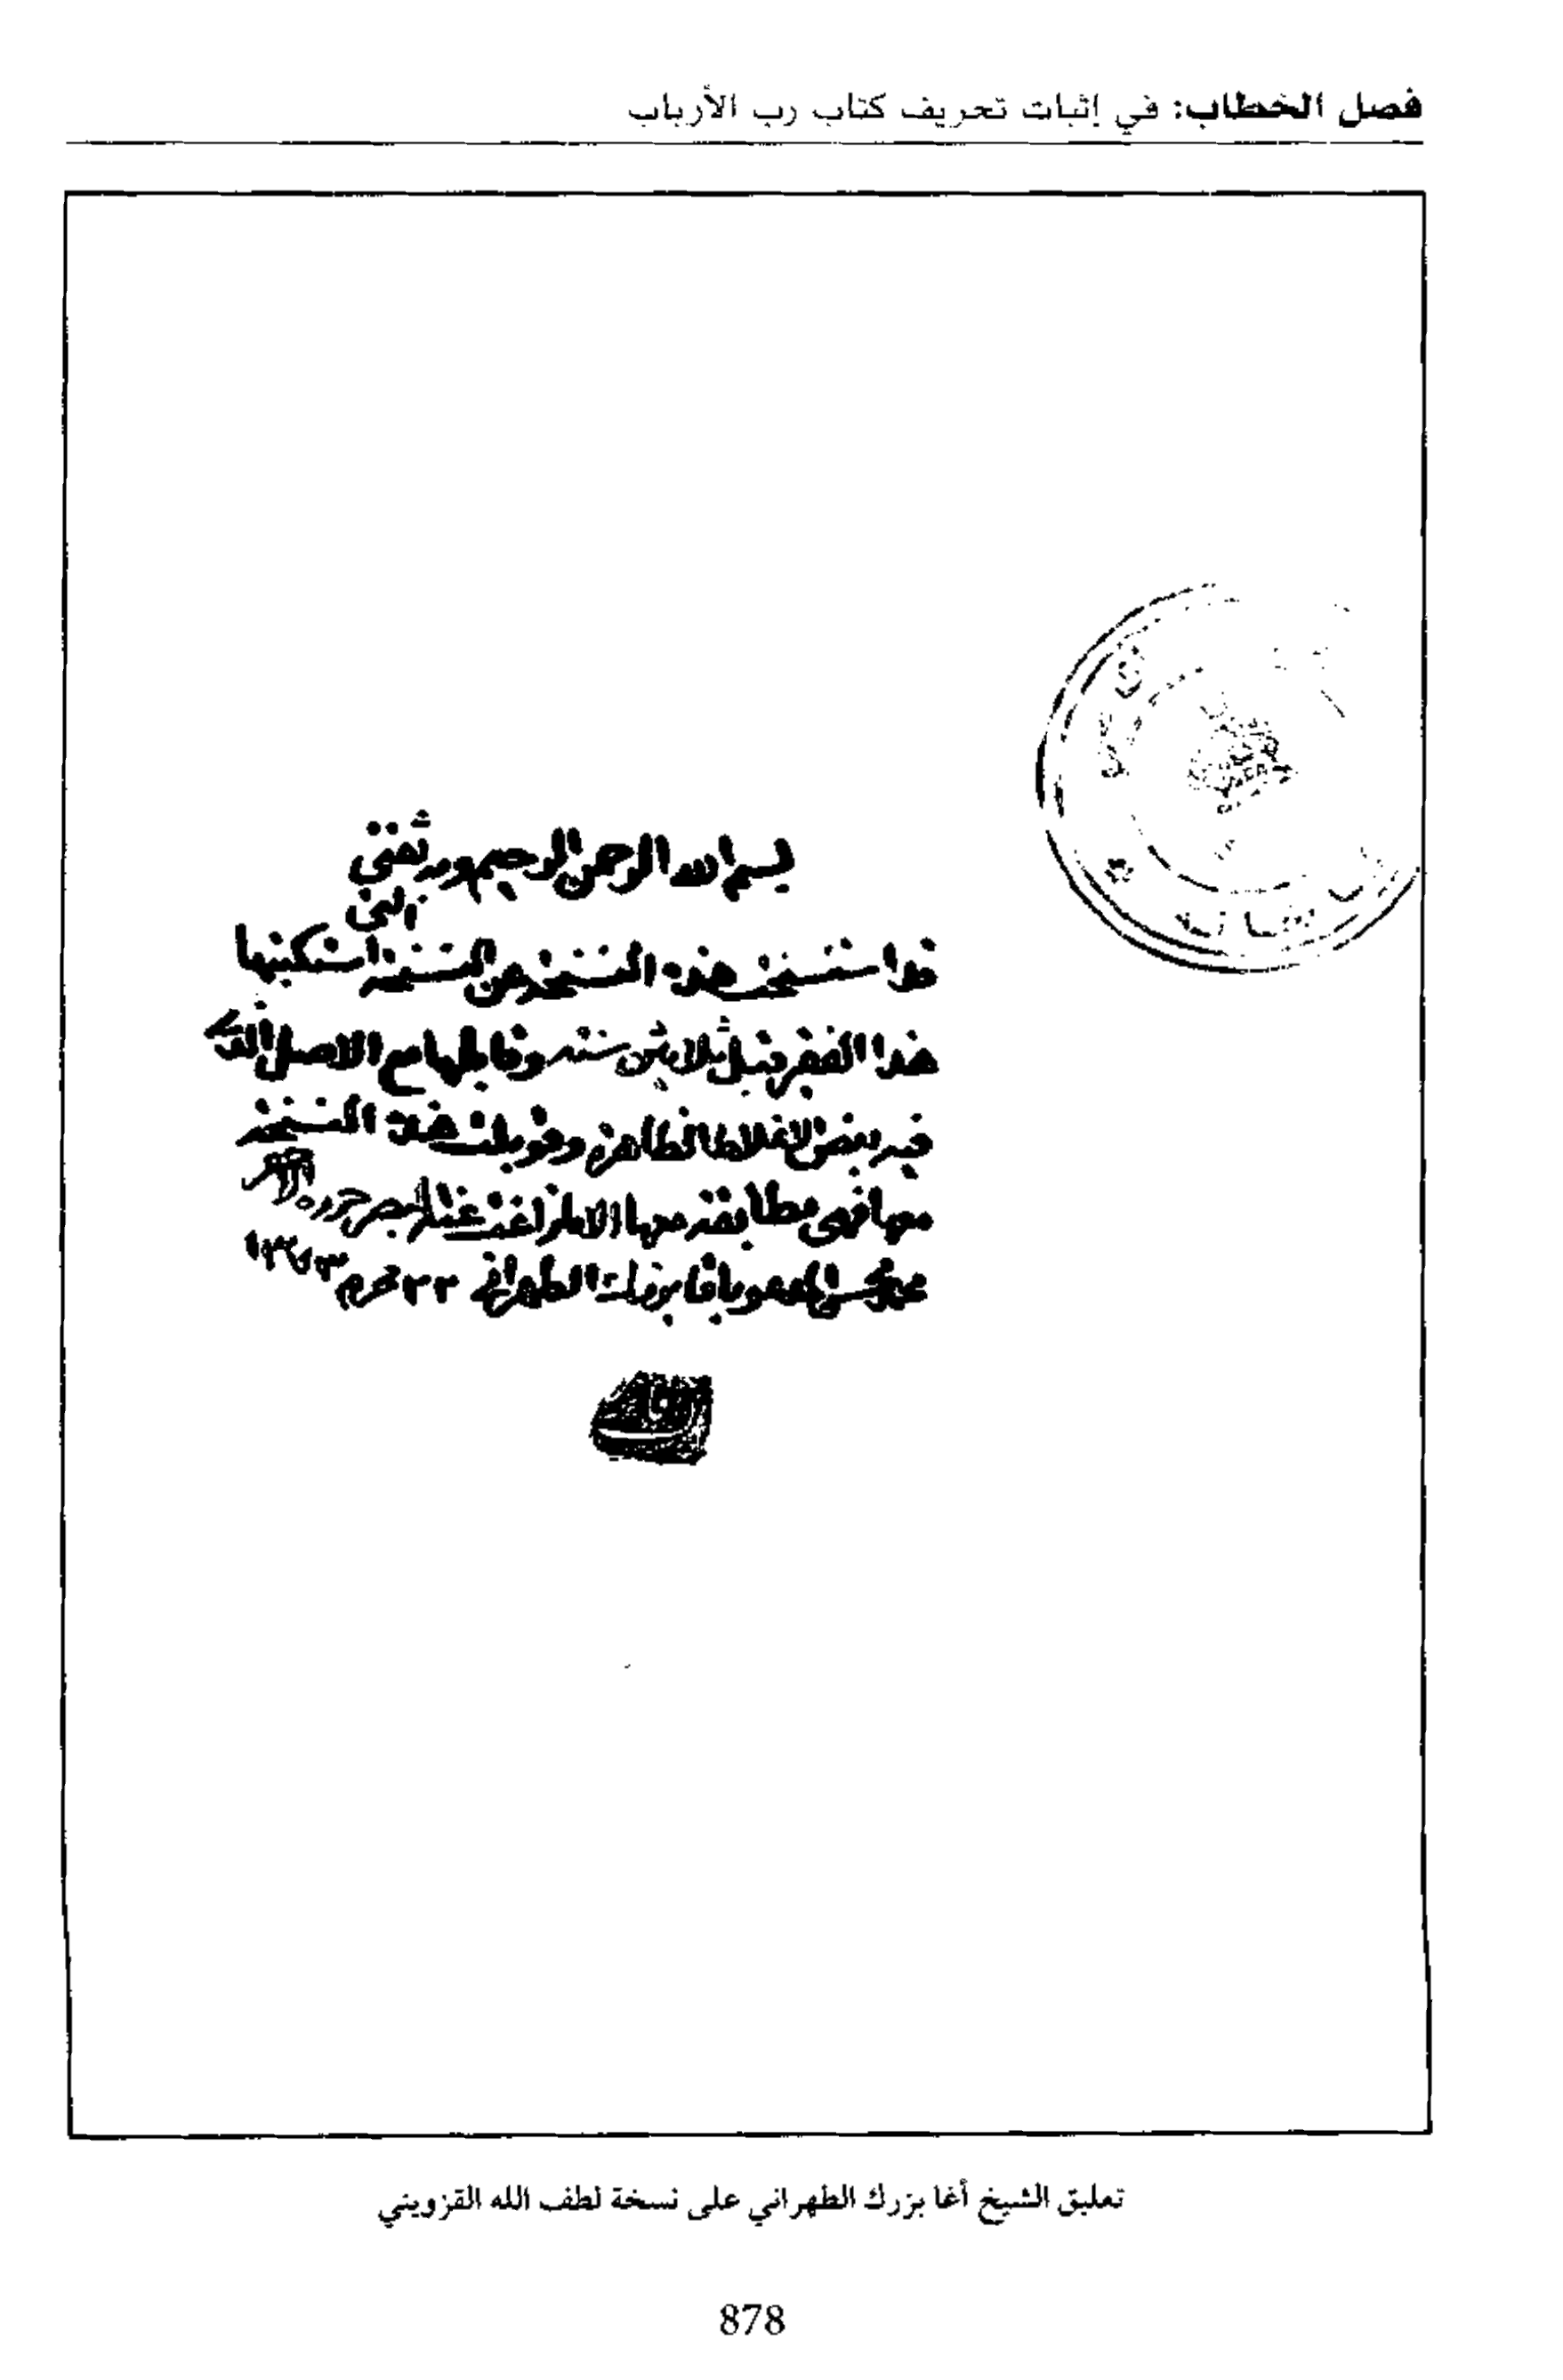 فصل الخطاب: في إثبات تحريف كتاب رب الأرباب
بسم الله الرحمن الرحيم وبه ثقتي
قد استنسخ هذه النسخة من النسخة التي استكتبها
هذا الفقير قبل ثلاثين سنة وقابلها مع الاصل الذي
فيه بعض الاغلاط الظاهرة وقوبلت هذه النسخة
معها فهي مطابقة معها الا ما زاغت عنه البصر حرره
المدعو باقا بزرك الطهراني ٢٣ محرم ١٣٥٣
تعليق الشيخ أغا بزرك الطهراني على نسخة لطف الله القزويني
878